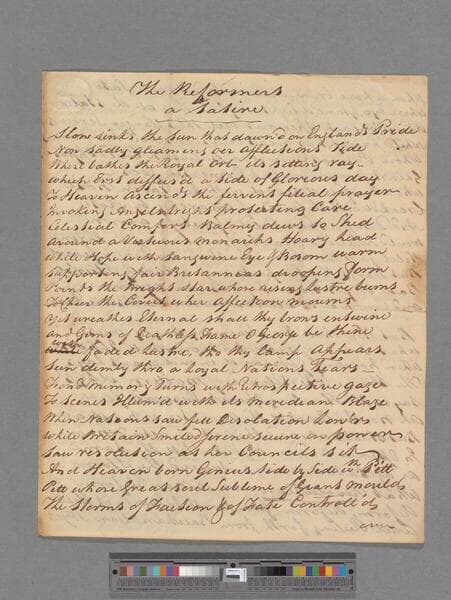 The Reformers
a Satire
Slow sinks the Sun that dawn'd on England's Pride
Now sadly gleaming oer Afflictions Tide
Where bathes the Royal Orb its setting ray
which Erst diffus'd a tide of Glorious day
To Heaven ascends the fervent filial prayer
Invoking Angels protecting Care
Celestial Comfort Balmy dews to Shed
Around a Virtuous monarchs Hoary head
While Hope with Sanguine Eye & Bosom warm
Supporting fair Britannias drooping Form
Points the bright star whose rising lustre burns
To Cheer the Court wher Affection mourns
Yet wreathes Eternal shall thy brows entwine
and Gems of Deathless Fame O George be thine
with faded Lustre, tho thy lamp Appears
Seen dimly thro a Loyal Nations Tears
Fond Memory turns with Retrospective gaze
To scenes Illum'd with its meridian Blaze
When Nations saw fell Desolation Low'r
while Britain smild serene secure in power
Saw resolution at her Councils sit
And Heaven born Genius side by Side wth Pitt
Pitt whose Great Soul Sublime of Giant mould
The Storms of Faction & of Fate Controll'd